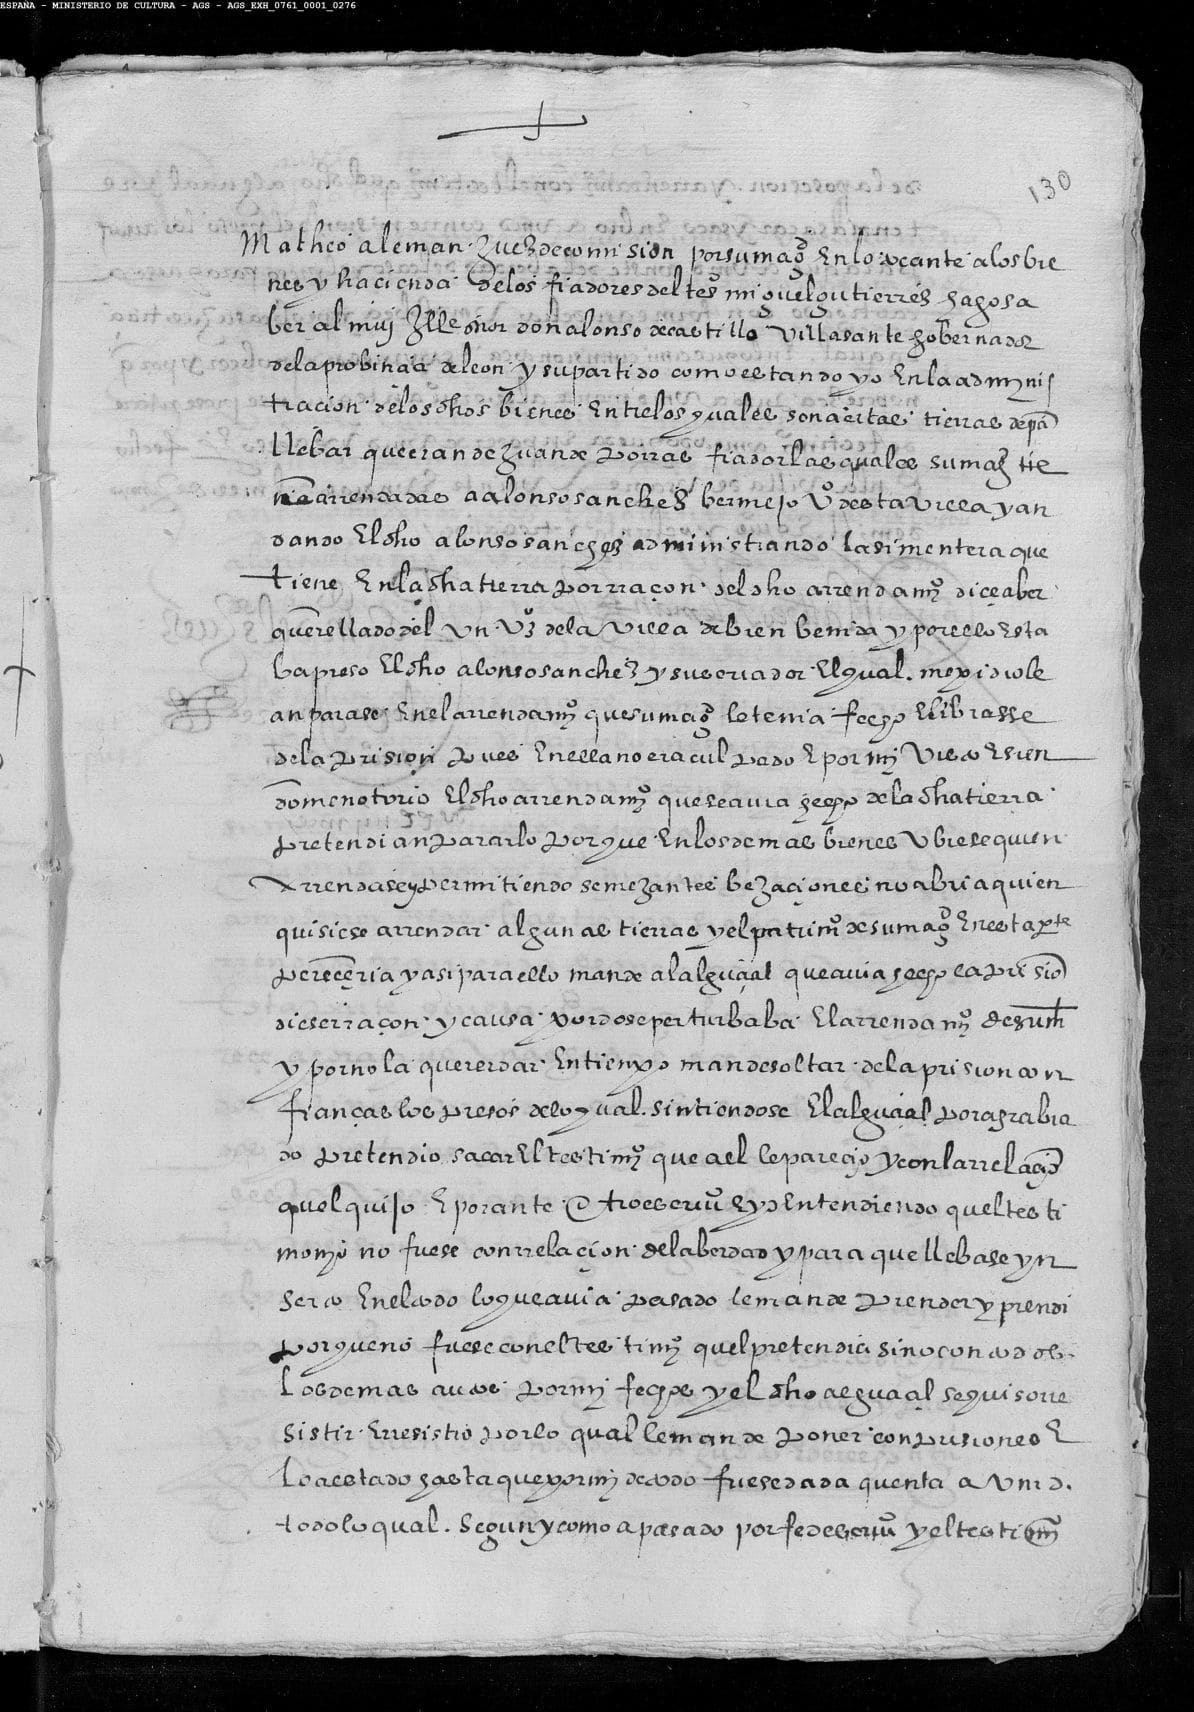 ESPAÑA - MINISTERIO DE CULTURA - AGS - AGS_EXH_0761_0001_0276
130
Matheo aleman Juez de comision por su magd En lo tocante a los bie
nes y hacienda de los fiadores del tesº miguel gutierrez hago sa
ber al muy Jlle señor don alonso de castillo Villasante gobernador
de la probincia de leon y su partido como estando yo En la adminis
tracion de los dhos bienes Entre los quales son ciertas tierras de pa
llebar que eran de Juan de Porras fiador las quales su magd tie
ne arrendadas a alonso sanchez bermejo vº desta Villa y an
dando El dho alonso sanchez administrando la simentera que
tiene En la dha tierra por raçon del dho arrendamº diçe aber
querellado del Vn Vº de la Villa de bien benida y por ello Esta
ba preso El dho alonso sanchez y su criador El qual me pidiole
anparase En el arrendamº que su magd le tenia fecho E librasse
de la prision pues En ella no era culpado E por mi Visto E sien
dome notorio El dho arrendamº que se avia hecho de la dha tierra
pretendi anpararlo porque En los demas bienes Vbiese quien
arrendase y permitiendo semejantes bejaçiones no abria quien
quisiese arrendar algunas tierras y el patrimº de su magd En esta pte
pereçeria y asi para ello mande al alguaçil que avia hecho la prisio
diese rraçon y causa por do se perturbaba El arrendamº de su md
y por no la querer dar En tienpo mande soltar de la prision con
fianças los presos de lo qual sintiendose El alguaçil por agrabia
do pretendio sacar El testimº que a el le pareçio y con la rrelaçio
quel quiso E por ante otro escriuº E yo Entendiendo quel testi
monio no fuese con rrelaçion de la berdad y para que llebase yn
serto En el todo lo que avia pasado le mande prender y prendi
porque no fuese con el testimº quel pretendia sino con todos
los demas autos por mi fechos y el dho alguaçil se quiso rre
sistir E rresistio por lo qual le mande poner con prisiones E
lo a estado hasta que por mi de todo fuese dada quenta a Vmd.
todo lo qual segun y como a pasado por fe de escriuº y el testimº